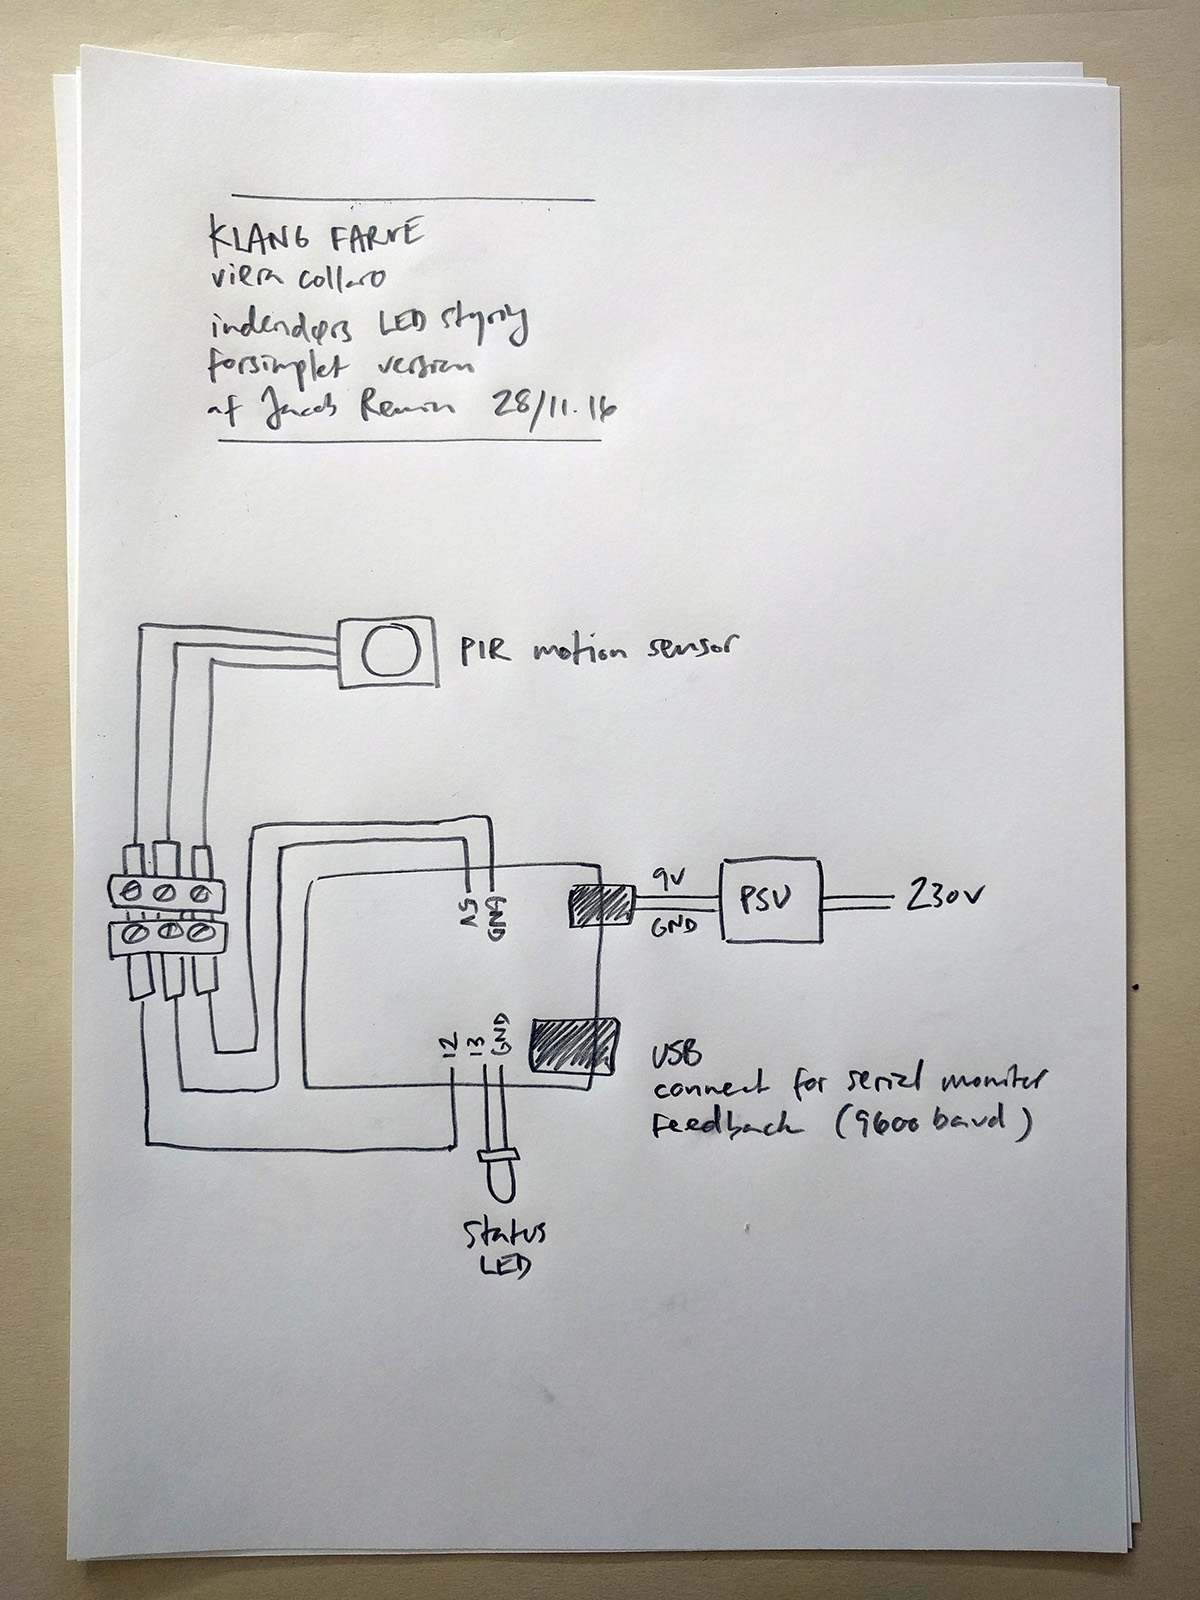 KLANG FARVE
viera collaro
indendørs LED styring
forsimplet version
af Jacob Remin 28/11.16
PIR motion sensor
5V
GND
9V
GND
PSU
230V
12
13
GND
USB
connect for serial monitor
feedback (9600 baud)
Status
LED